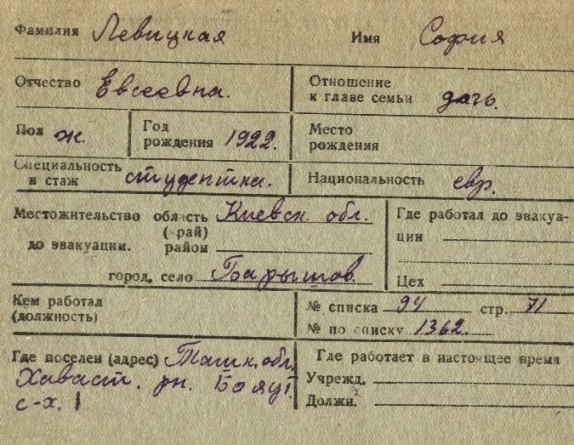 Фамилия Левицкая Имя София
Отчество Евсеевна. Отношение к главе семьи дочь.
Пол ж. Год рождения 1922. Место рождения
Специальность и стаж студентка. Национальность евр.
Местожительство область Киевск. обл. Где работал до эвакуа-
(край) ции
до эвакуации. район
город, село Барышов. Цех
Кем работал № списка 94 стр. 71
(должность) № по списку 1362.
Где поселен (адрес) Ташк. обл. Где работает в настоящее время
Хаваст. рн. Учрежд.
с-х. 1 Должн.